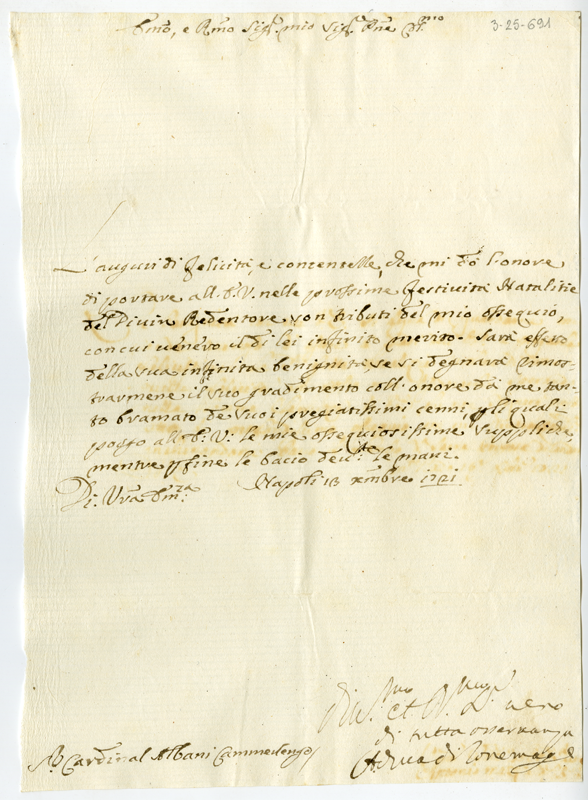 Emo, e Rmo Sigr. mio Sigr. Pne Cmo
3-25-691
L'auguri di felicità, e contentezze, che mi dò l'onore
di portare all. E. V. nelle prossime festività Natalitie
del Divin Redentore son tributi del mio ossequio,
con cui venero il di lei infinito merito. Sarà effetto
della sua infinita benignità se si degnarà rimos-
trarmene il suo gradimento coll'onore dà me tan-
to bramato de suoi pregiatissimi cenni, p li quali
porgo all. E. V. le mie ossequiosissime suppliche,
mentre p fine le bacio devte le mani.
Di V'ra Em.za Napoli 13 Xmbre 1721
di tutta osservanza
Sr. Cardinal Albani Cammerlengo